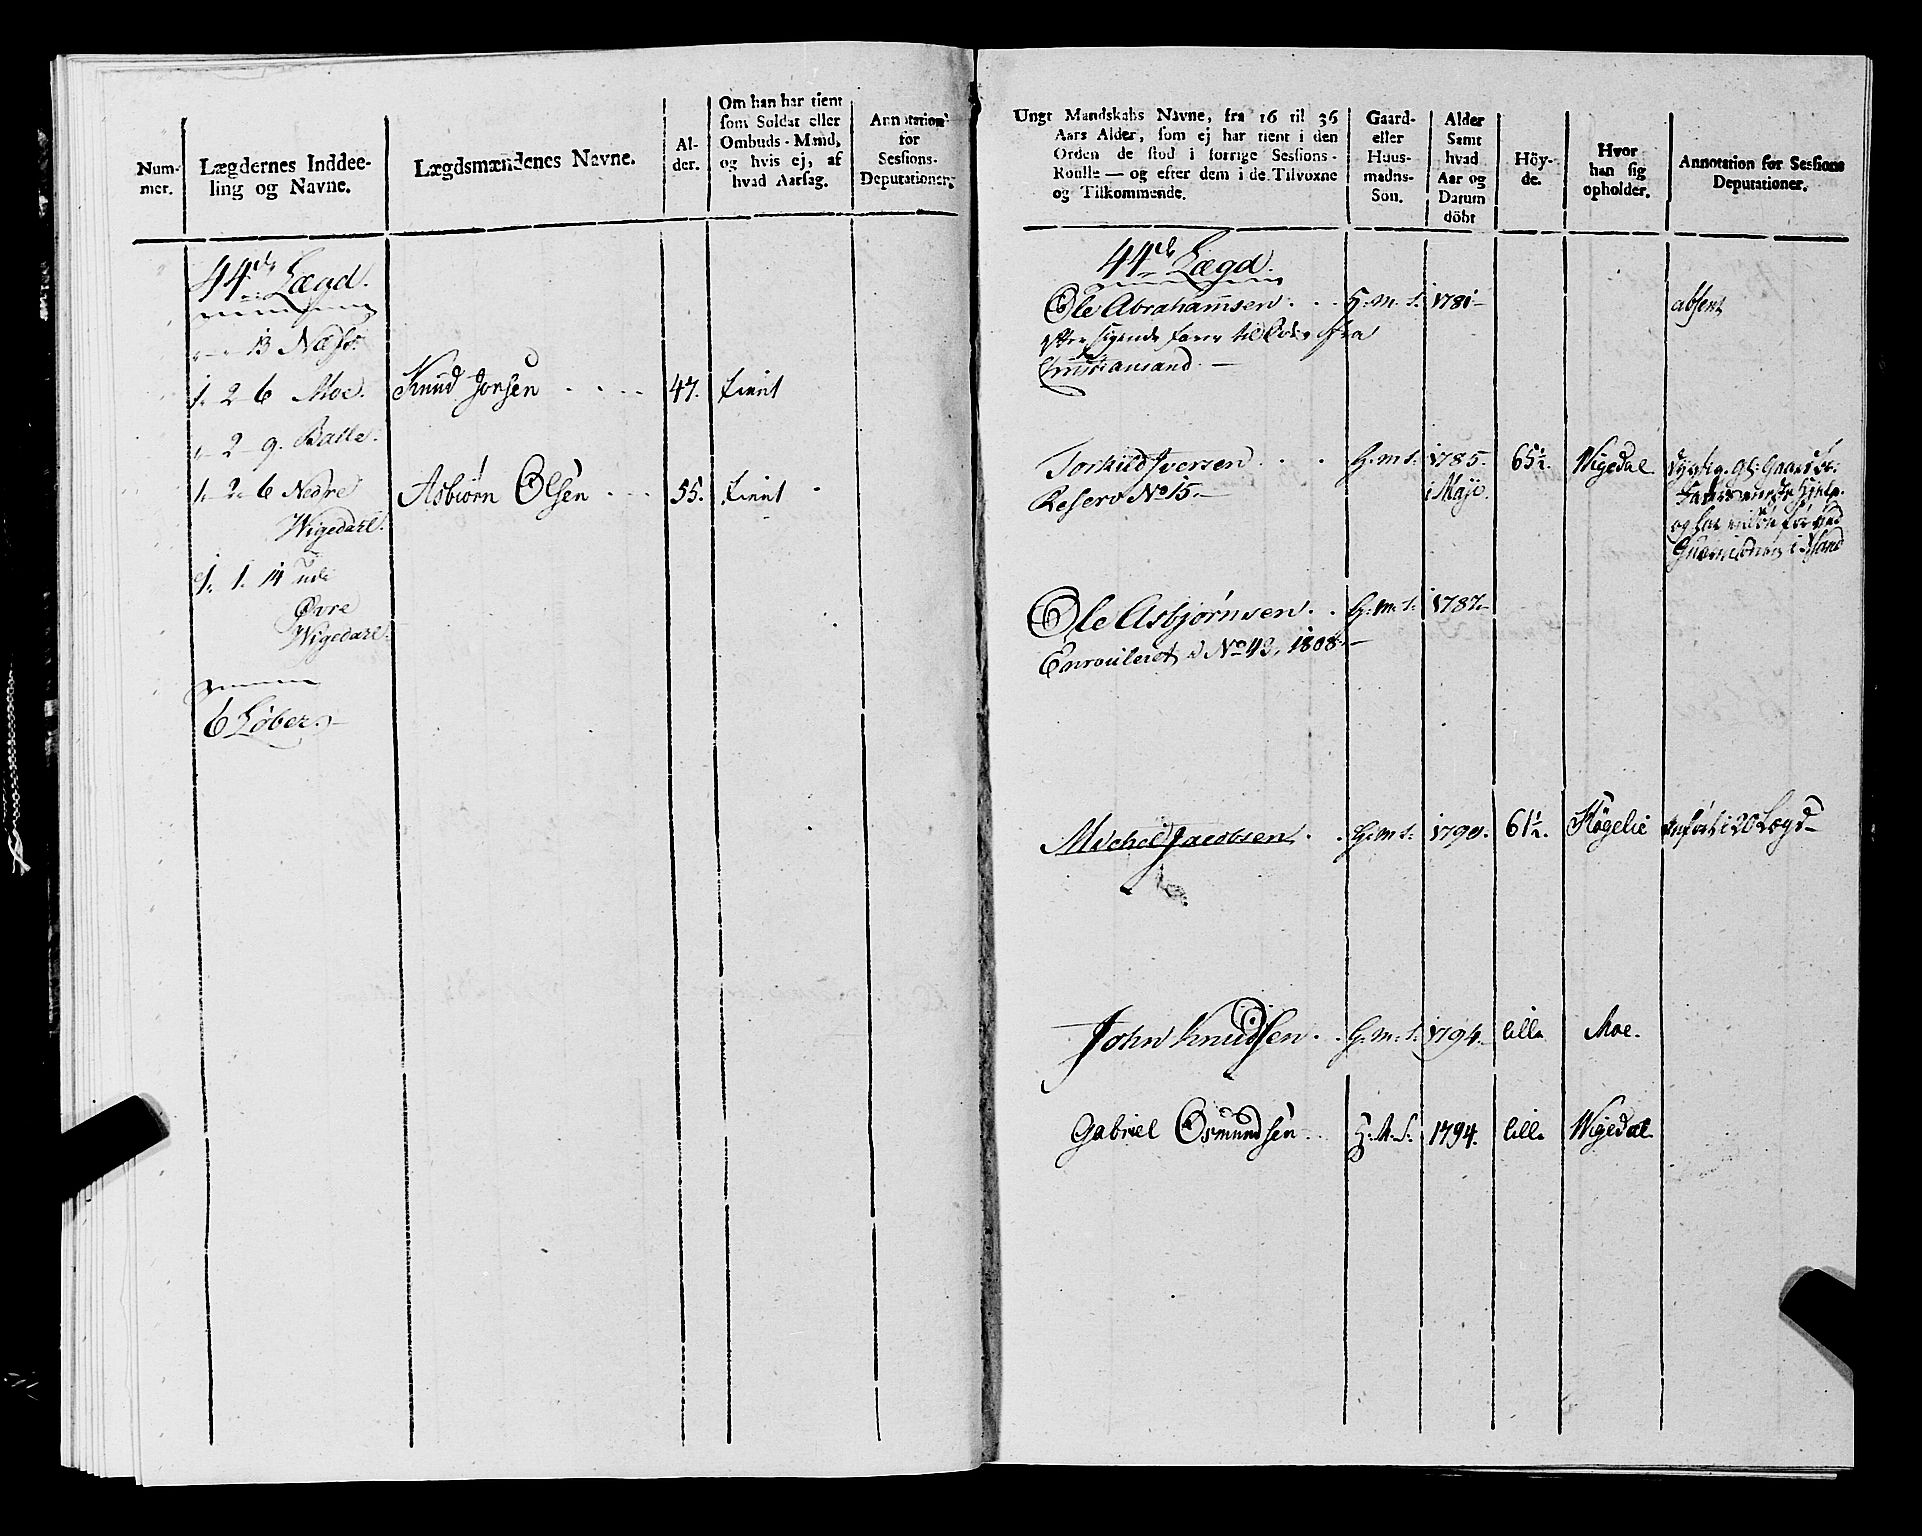 Num-
mer.
Lægdernes Inddee-
ling og Navne.
Lægdsmændenes Navne.
Al-
der.
Om han har tient
som Soldat eller
Ombuds-Mand,
og hvis ej, af
hvad Aarsag.
Annotation
for
Sessions-
Deputationer.
44de Lægd.
13 Næss.
1. 2 - 6 Moe. Knud Jonsen 47. tient
2 - 9. Baile.
1. 2. 6 Nedre Asbiørn Olsen 55. tient
Wigedahl.
1. 1. 14 ude
Øvre
Wigedahl.
6 Løber.
Ungt Mandskabs Navne, fra 16 til 36
Aars Alder, som ej har tient i den
Orden de stod i forrige Sessions-
Roulle — og efter dem i de Tilvoxne
og Tilkommende.
Gaard-
eller
Huus-
mands-
Søn.
Alder
Samt
hvad
Aar og
Datum
döbt
Höy-
de.
Hvor
han sig
opholder.
Annotation for Sessions
Deputationer.
44de Lægd.
Ole Abrahamsen H. m. S. 1781 absent
efter sigende farer til fra
Christiansand.
Torkild Iversen G. m. S. 1785. 65½. Wigedal dygtig.
Reserv No 15. i Maji.
og
i
Ole Asbjørnsen G. m. S. 1787
Enroulleret No 43, 1808.
Michel Jacobsen G. m. S. 1790. 61½. Høgelie anført i 20 Lægd
John Knudsen G. m. S. 1794. lille Moe.
Gabriel Osmundsen H. M. S. 1794. lille Wigedal